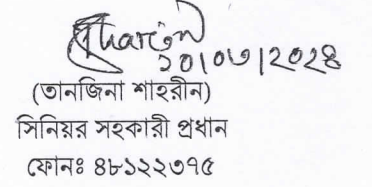 ২০|০৩|২০২৪
(তানজিনা শাহরীন)
সিনিয়র সহকারী প্রধান
ফোনঃ ৪৮১২২৩৭৫